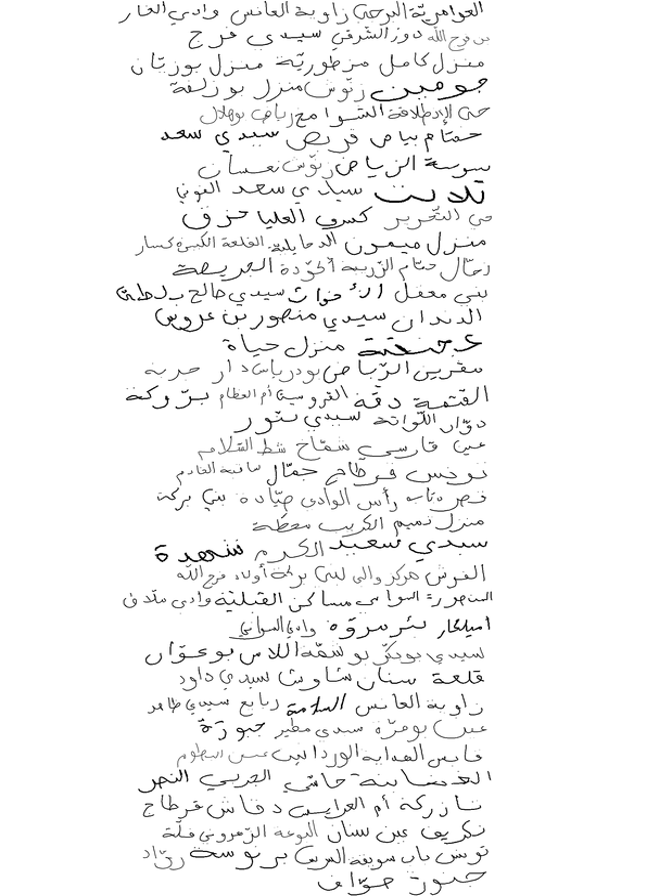 العوامريّة البرجين زاوية العانس وادي الغار
بن فرج الله دوز الشرقي سيدي فرج
منزل كامل مزطوريّة منزل بوزيّان
جومين زنّوش منزل بوزلفة
حي الإنطلاقة الشوامخ رياض بوهلال
ختّام بياص قربص سيدي سعد
سوسة الرياض زنّوش نعسان
تلابت سيدي سعد العوني
حي التّحرير كسرى العليا حزق
منزل ميمون الدخايلية القلعة الكبرى كسار
رحّال حمّام الزريبة الحوّدة العريضة
بني معقل الأخوات سيدي صالح بلطي
الدندان سيدي منصور بن عروس
غرجنتية منزل حياة
مقرين الرّياض بودرياس دار حربة
القتمة دقة الفروسين أم العظام برّوكة
دوّار اللّواتة سيدي نور
عين فارسي شمّاخ شط السّلام
تونس قرطاج جمّال ساقية الخادم
قصر رأس الوادي صيّادة بني بركة
منزل تميم الكريب معطّة
سيدي سعيد الكرم شهدة
القوش مركز والي لبنى بركة أولاد فرج الله
المنصورة السواسي مساكن القبليّة وادي ملاق
أميلكار بئر مروّة وادي السواني
سيدي بوبكّر بوشمّة اللاس بوعوّان
قلعة سنان شاوش سيدي داود
زاوية العانس السلامة ربايع سيدي طاهر
عين بومرّة سيدي مطير خبوزة
قابس الهداية الوردانين عين
الغضابنة حاسي الجربي النحر
تازركة أم العرايس دقاش قرطاج
نكريف عين سنان البوعة الزهروني فلّة
تونس باب سويقة العريش برنوسة روّاد
جنورة صوّاف